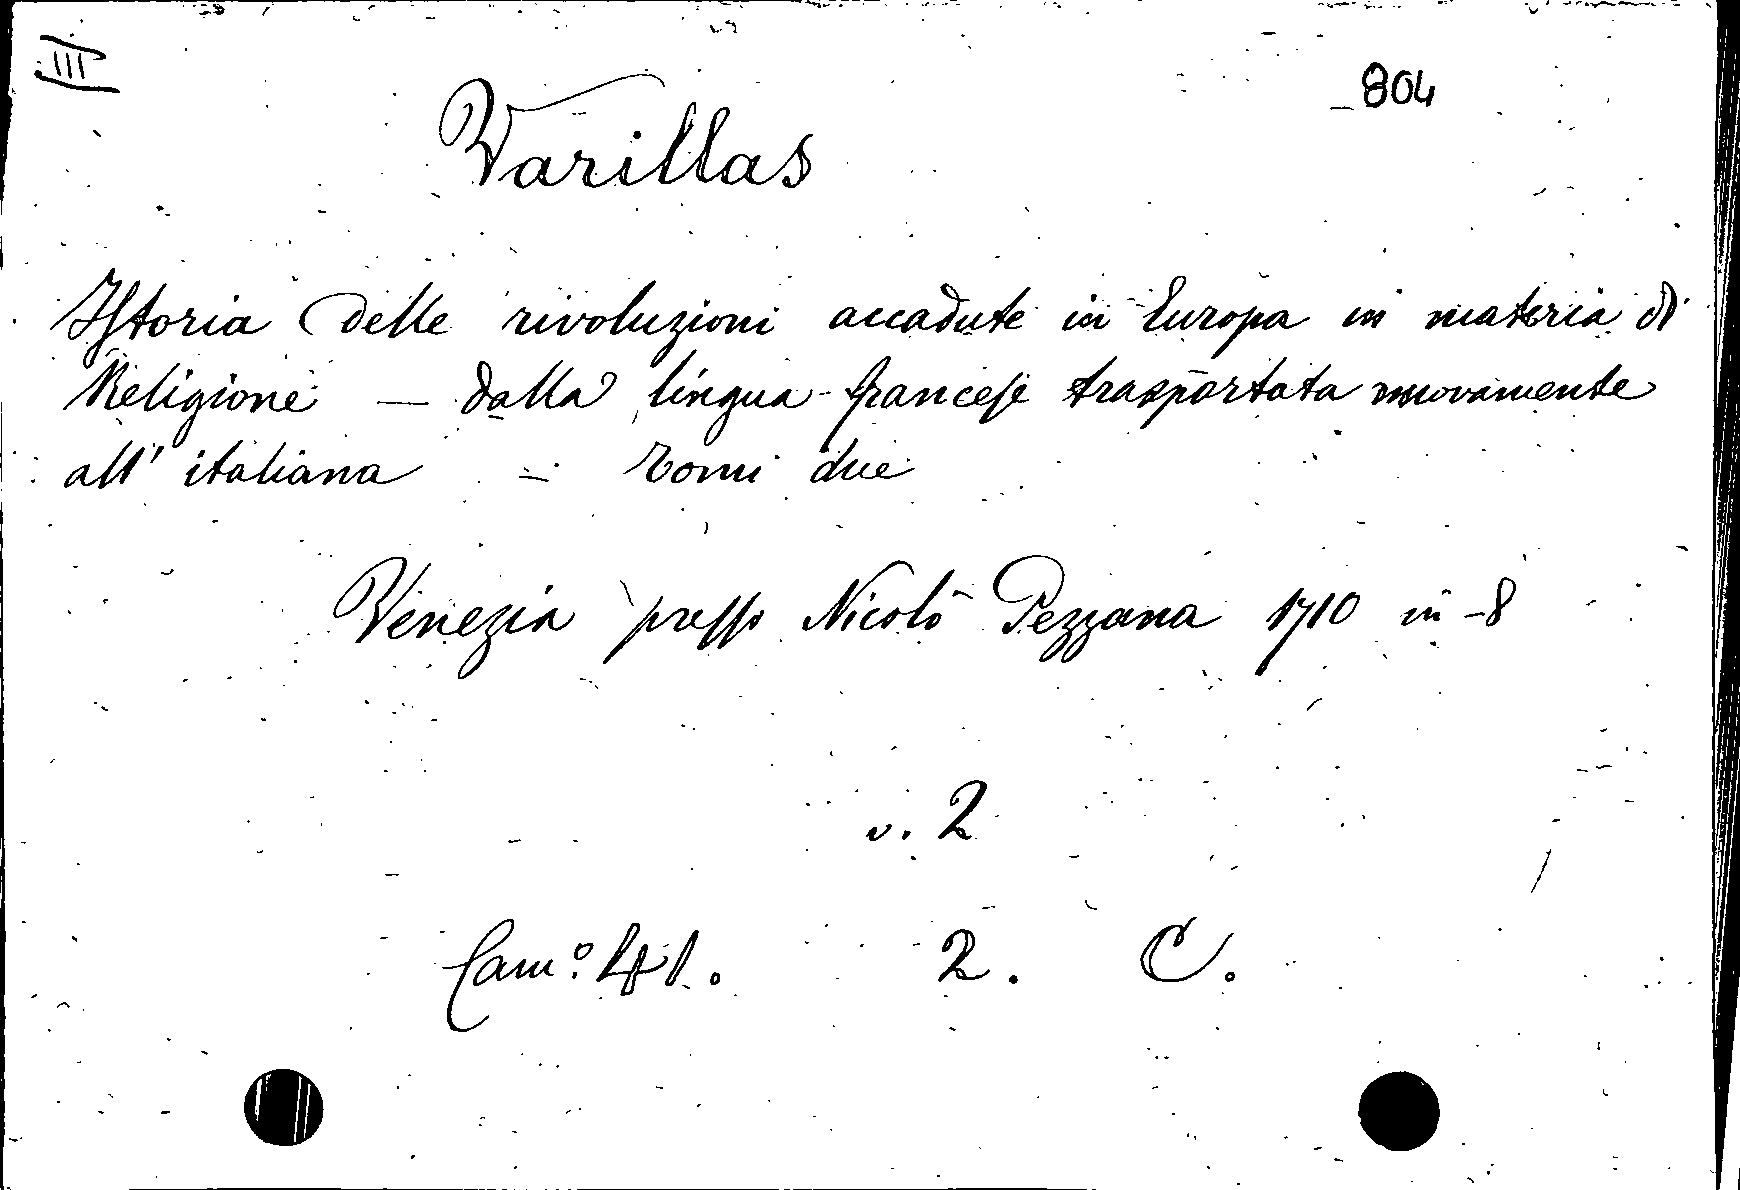 III
804
Varillas
Istoria delle rivoluzioni accadute in Europa in materia di
Religione — dalla lingua francese trasportata nuovamente
all' italiana — Tomi due
Venezia presso Nicolò Pezzana 1710 in-8
v. 2
Cam.º 41. 2. C.